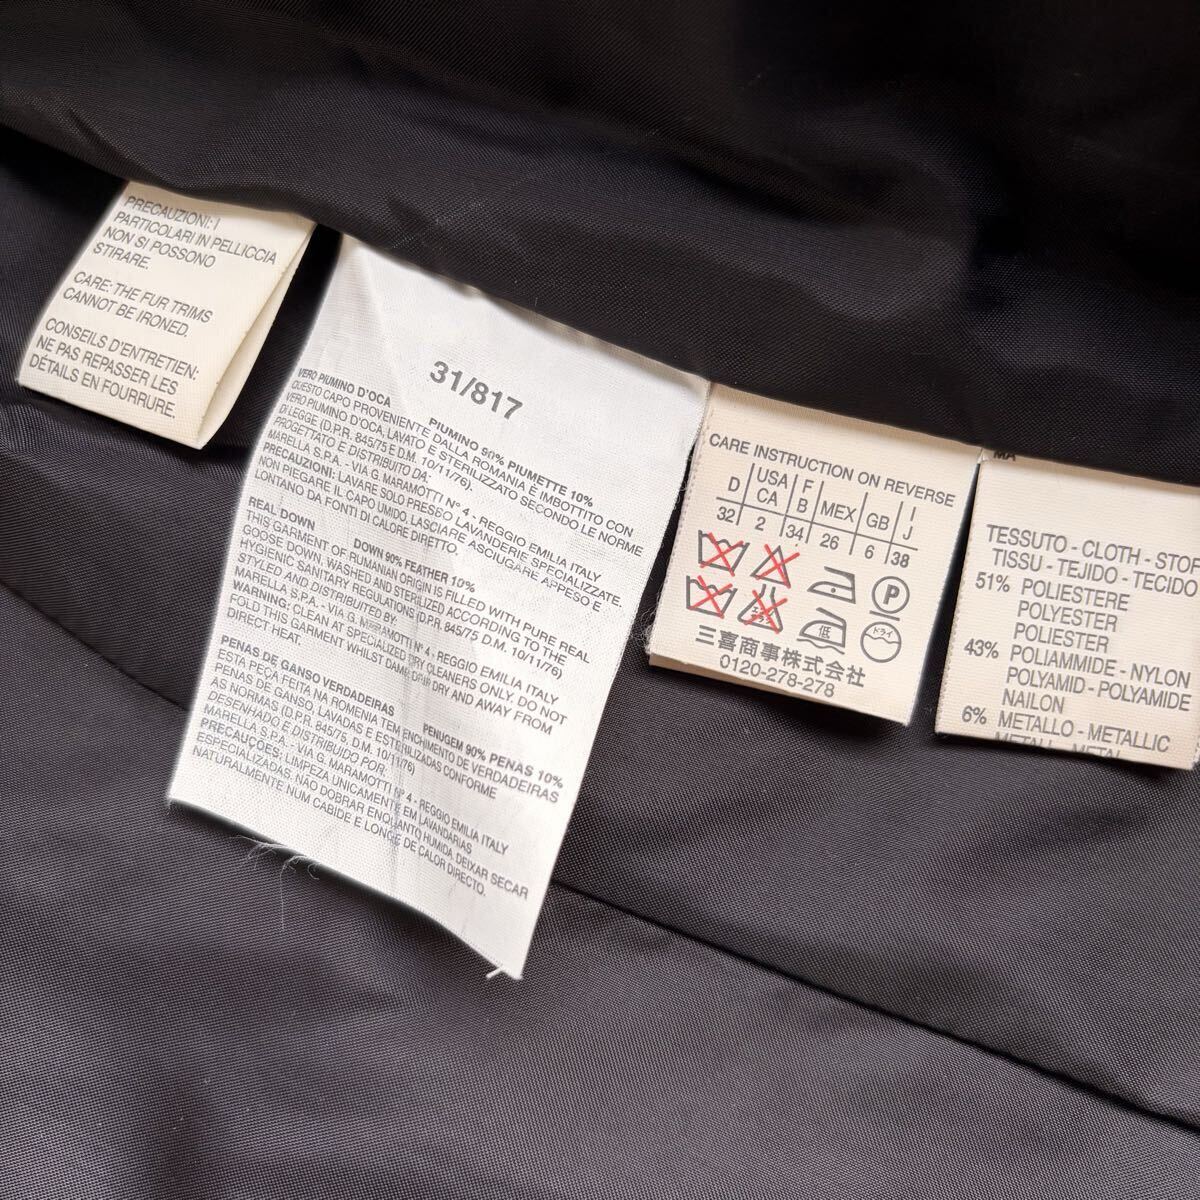 PRECAUZIONI: I
PARTICOLARI IN PELLICCIA
NON SI POSSONO
STIRARE.
CARE: THE FUR TRIMS
CANNOT BE IRONED.
CONSEILS D'ENTRETIEN:
NE PAS REPASSER LES
DÉTAILS EN FOURRURE.
31/817
VERO PIUMINO D'OCA PIUMINO 90% PIUMETTE 10%
QUESTO CAPO PROVENIENTE DALLA ROMANIA È IMBOTTITO CON
VERO PIUMINO D'OCA, LAVATO E STERILIZZATO SECONDO LE NORME
DI LEGGE (D.P.R. 845/75 E D.M. 10/11/76).
PROGETTATO E DISTRIBUITO DA:
MARELLA S.P.A. - VIA G. MARAMOTTI N° 4 - REGGIO EMILIA ITALY
PRECAUZIONI: LAVARE SOLO PRESSO LAVANDERIE SPECIALIZZATE.
NON PIEGARE IL CAPO UMIDO, LASCIARE ASCIUGARE APPESO E
LONTANO DA FONTI DI CALORE DIRETTO.
REAL DOWN DOWN 90% FEATHER 10%
THIS GARMENT OF RUMANIAN ORIGIN IS FILLED WITH PURE REAL
GOOSE DOWN, WASHED AND STERILIZED ACCORDING TO THE
HYGIENIC SANITARY REGULATIONS (D.P.R. 845/75 D.M. 10/11/76)
STYLED AND DISTRIBUTED BY:
MARELLA S.P.A. - VIA G. MARAMOTTI N° 4 - REGGIO EMILIA ITALY
WARNING: CLEAN AT SPECIALIZED DRY CLEANERS ONLY. DO NOT
FOLD THIS GARMENT WHILST DAMP, DRIP DRY AND AWAY FROM
DIRECT HEAT.
PENAS DE GANSO VERDADEIRAS PENUGEM 90% PENAS 10%
ESTA PEÇA FEITA NA ROMENIA TEM ENCHIMENTO DE VERDADEIRAS
PENAS DE GANSO, LAVADAS E ESTERILIZADAS CONFORME
AS NORMAS (D.P.R. 845/75, D.M. 10/11/76)
DESENHADO E DISTRIBUIDO POR:
MARELLA S.P.A. - VIA G. MARAMOTTI N° 4 - REGGIO EMILIA ITALY
PRECAUÇÕES: LIMPEZA UNICAMENTE EM LAVANDARIAS
ESPECIALIZADAS. NÃO DOBRAR ENQUANTO HUMIDA, DEIXAR SECAR
NATURALMENTE NUM CABIDE E LONGE DE CALOR DIRECTO.
CARE INSTRUCTION ON REVERSE
D USA CA F B MEX GB I J
32 2 34 26 6 38
P
低 ドライ
三喜商事株式会社
0120-278-278
MA
TESSUTO - CLOTH - STOF
TISSU - TEJIDO - TECIDO
51% POLIESTERE
POLYESTER
POLIESTER
43% POLIAMMIDE - NYLON
POLYAMID - POLYAMIDE
NAILON
6% METALLO - METALLIC
METALL - METAL